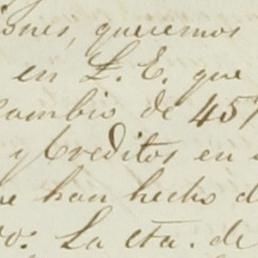 iones, queremos
en L. E. que
Cambio de 457
y Creditos en
e han hecho d
vo: La cta. de